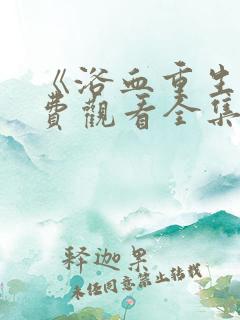 《浴血重生
費觀看全集
释迦果
未经同意禁止转载